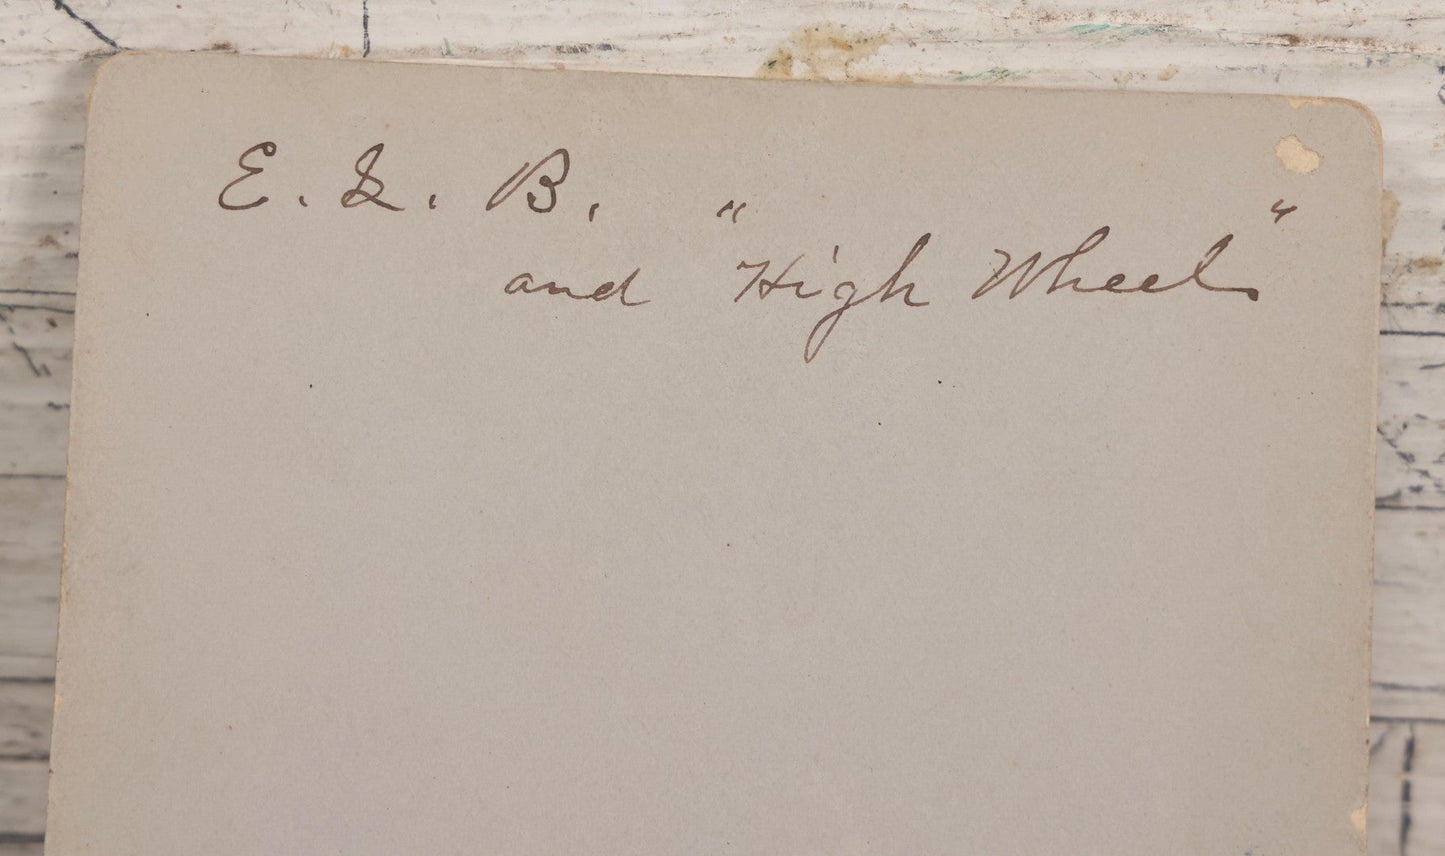 E. L. B.
and "High Wheel."